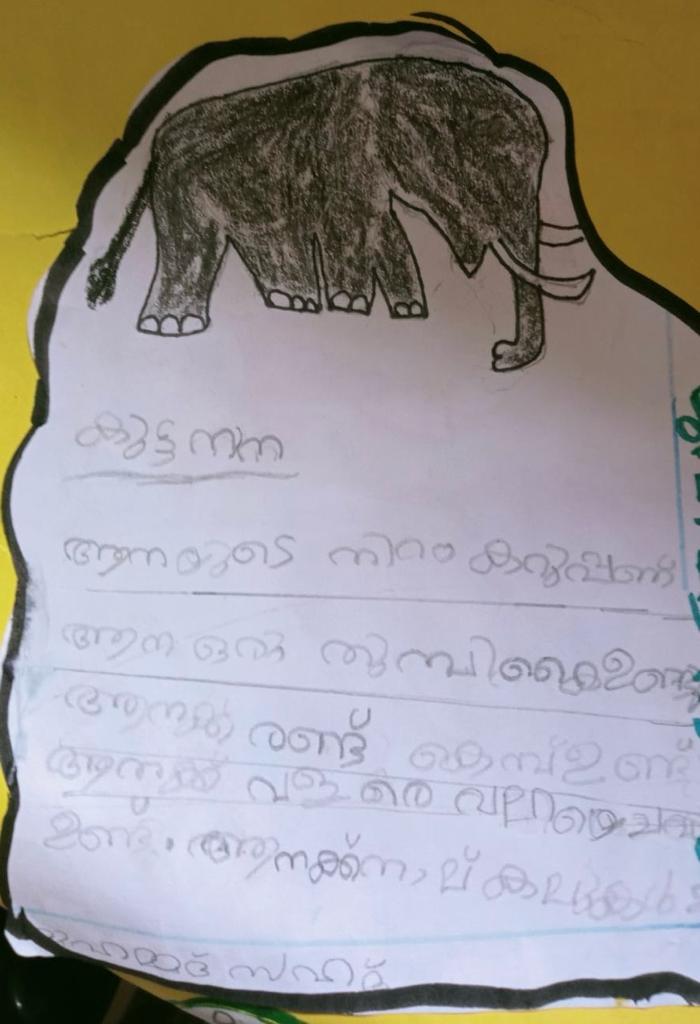 കുട്ടനന
ആനയുടെ നിറം കറുപ്പണ്
ആന ഒരു തുമ്പികൈഉണ്ട്
ആനക്ക രണ്ട് കെമ്പ്ഉണ്ട്
ആനക്ക വള രെ വലിയ
ഉണ്ട്. ആനക്ക്നാല് കലുകൾ
മുഹമ്മദ് സഹദ്